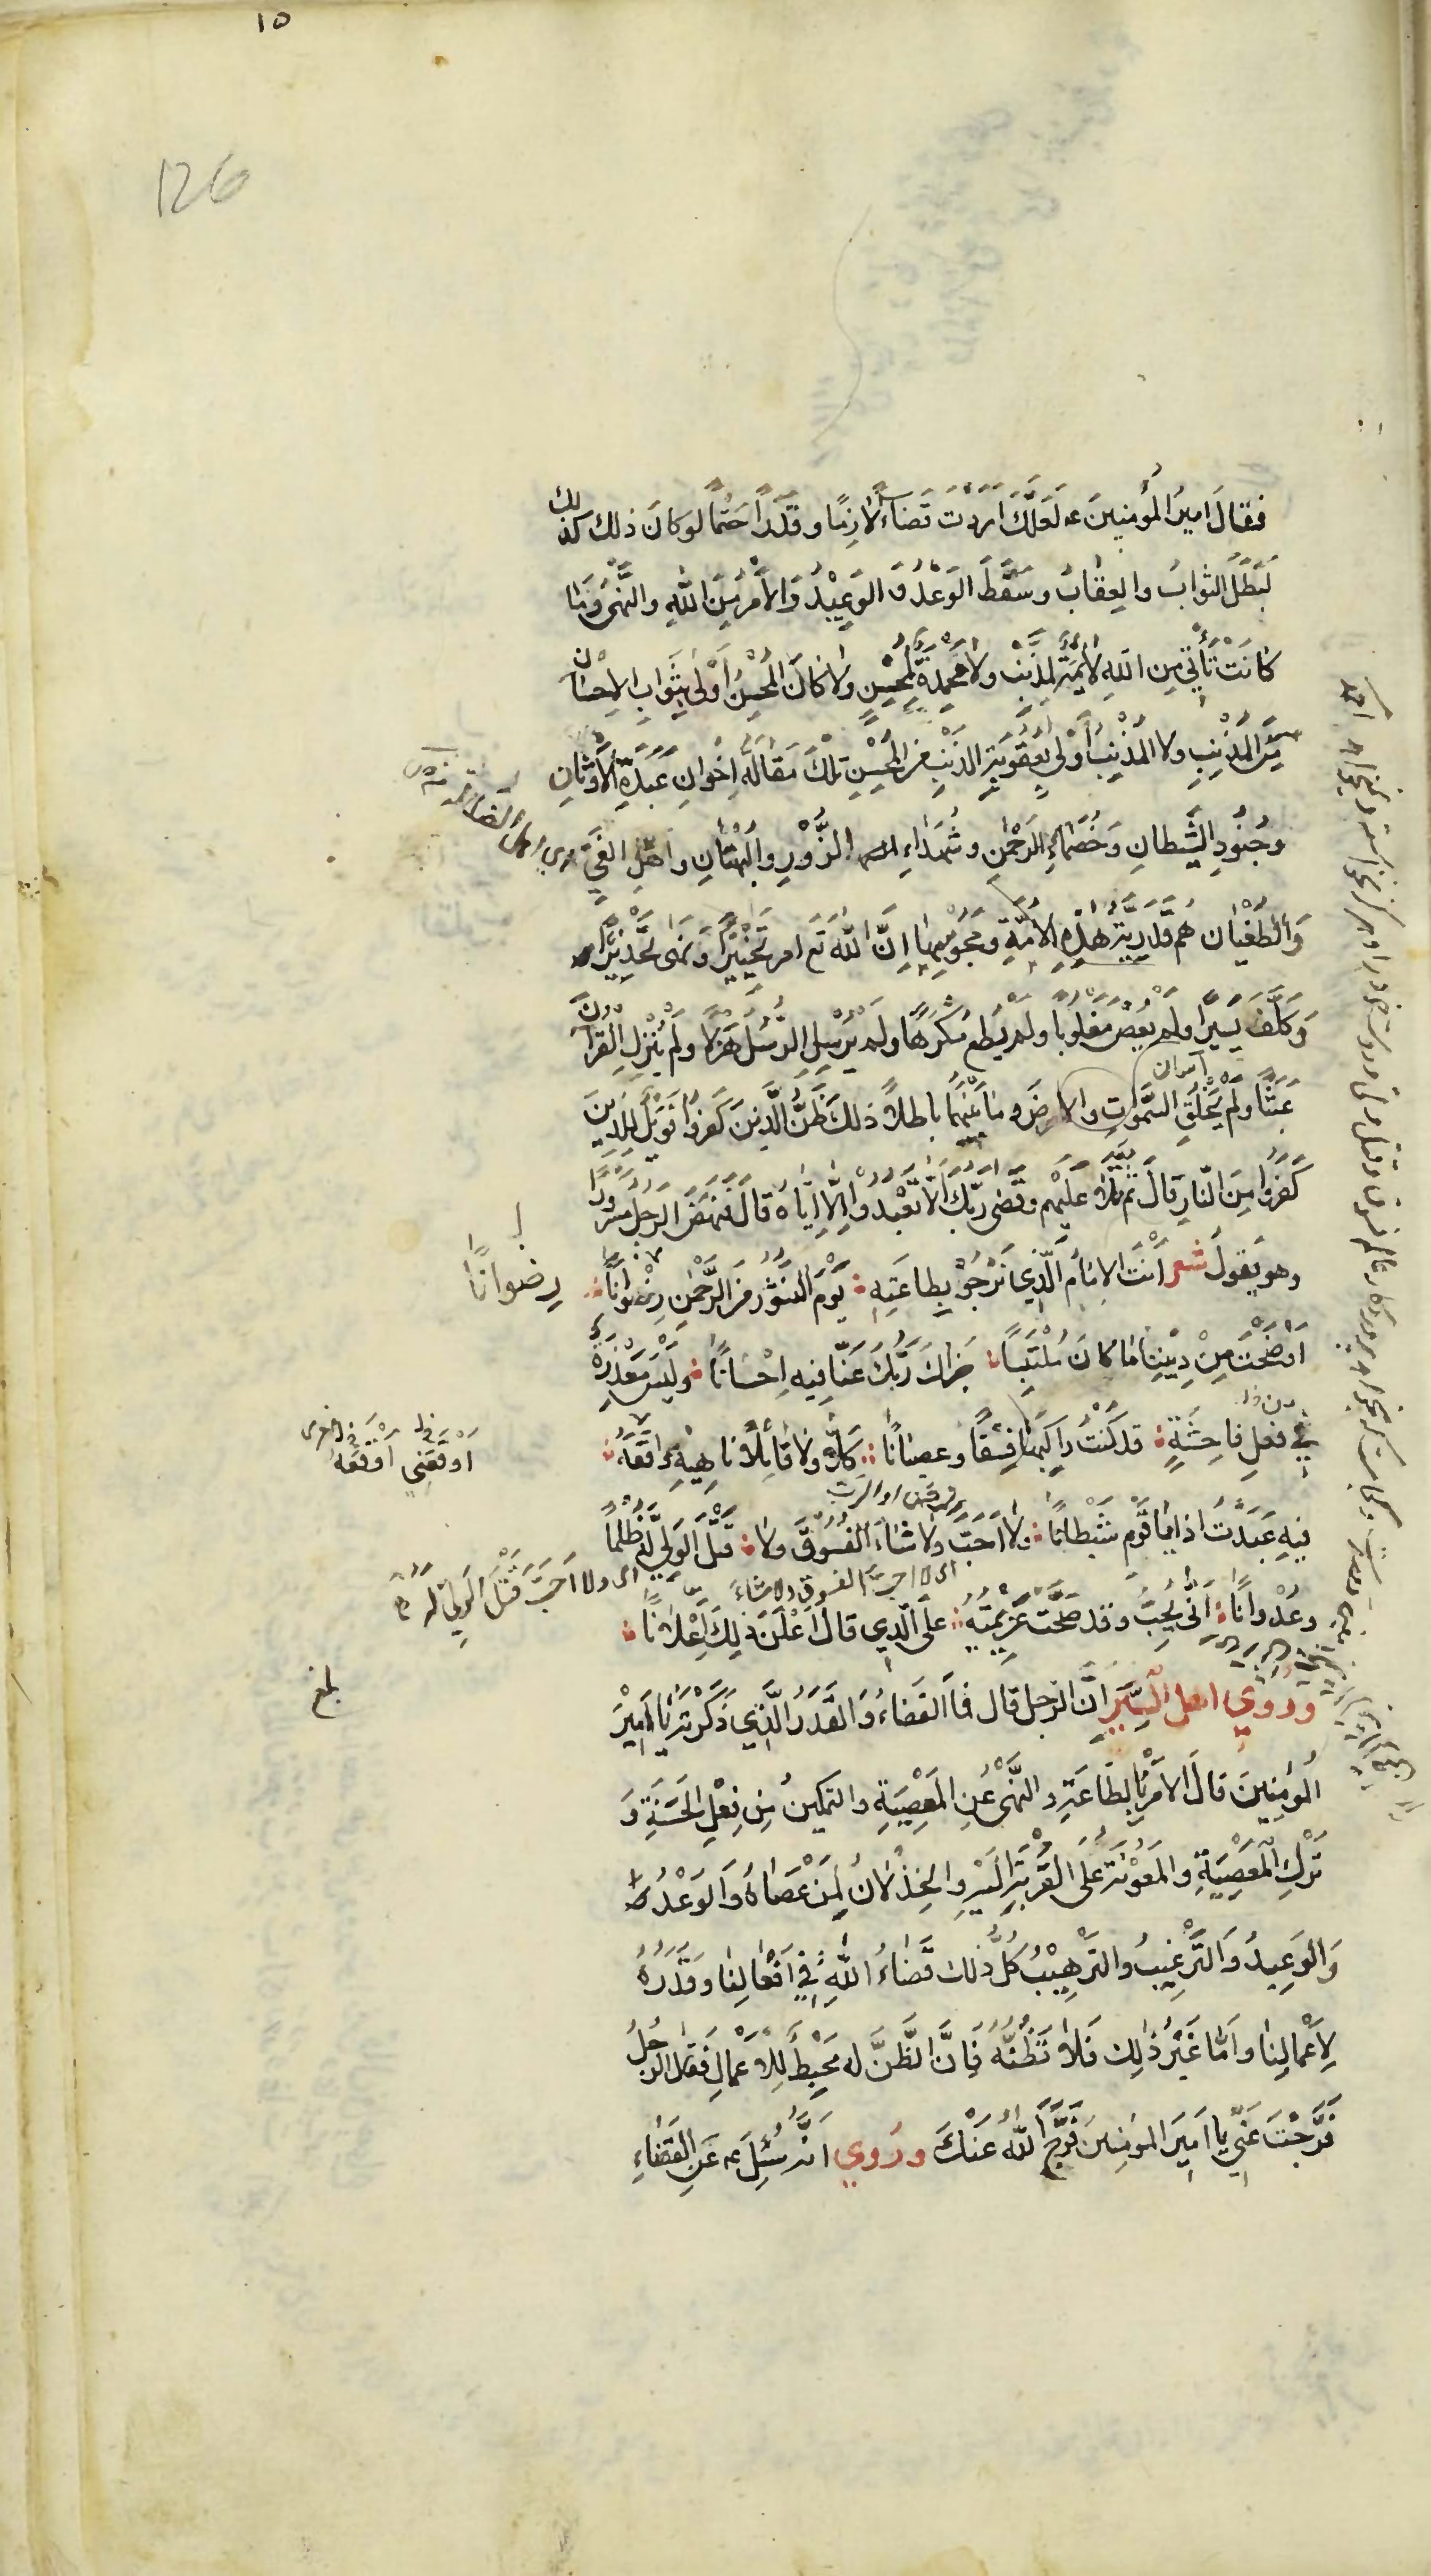 ١٥
126
فقالَ اميرُ المُؤمنينَ ع لَعَلَّكَ اَرَدْتَ قَضاءً لازِمًا وقَدَرًا حَتْمًا لوكانَ ذلك كذلك
لَبَطَلَ الثوابُ والعِقابُ وسَقَطَ الوَعْدُ وَ الوَعِيْدُ وَالأمْرُ مِنَ اللهِ والنَّهْىُ وَمَا
كانَتْ تَأْتي مِنَ اللهِ لائِمَةٌ لِمُذْنِبٍ ولا مَحْمَدَةٌ لِمُحْسِنٍ ولا كانَ المُحْسِنُ أَوْلَى بِثَوَابِ الاِحْسَانِ
مِنَ المُذْنِبِ ولا المُذْنِبُ اَوْلَى بِعُقُوبَةِ الذَنْبِ مِنَ المُحْسِنِ تِلْكَ مَقَالَةُ اِخْوانِ عَبَدَةِ الأَوْثَانِ
وجُنُودِ الشَّيطانِ وَخُصَمَاءِ الرَحْمٰنِ وشُهَدَاءِ الزُّوْرِ وَالبُهْتَانِ واهْلِ الغَيِّ
وَالطُغْيَان هُم قَدَرِيَّةُ هٰذِهِ الأُمَّةِ ومَجُوسُهَا اِنَّ اللهَ تَعَ امر تَخْيِيْرًا وَنَهَى تَحْذِيْرًا
وَكَلَّفَ يَسِيْرًا ولَم يُعْصَ مَغْلُوبًا ولَمْ يُطَع مُكْرِهًا ولَمْ يُرْسِلِ الرُسُلَ هَزْلًا ولَمْ يُنْزِلِ القُرآنَ
آسمان
عَبَثًا ولَمْ يَخْلُقِ السَّمٰوَاتِ والارضَ و مَا بَيْنَهُمَا باطلاً ذلكَ ظَنُّ الَّذِينَ كَفَرُوا فَوَيْلٌ لِلَّذِينَ
كَفَرُوا مِنَ النَّارِ قالَ ثُم تَلا عَلَيْهِم وقَضَى رَبُّكَ اَلّا تَعْبُدُوْا اِلّا اِيَّاهُ قَالَ فَنَهَضَ الرَجلُ مَسْرُورًا
وهو يَقولُ شعر اَنْتَ الاِمَامُ الَّذِي نَرْجُوْ بِطاعَتِهِ يَوْمَ النُشُورِ مِنَ الرَّحْمٰنِ رِضْوَانًا
رِضوانًا
اَوْضَحْتَ مِنْ دِيْنِنَا مَا كانَ مُلْتَبِسًا جَزاكَ رَبُّكَ عَنَّا فِيهِ اِحْسَانًا وَلَيْسَ مَعْذِرَةٌ
في فِعلِ فاحِشَةٍ قد كُنْتُ رَاكِبَهَا فِسْقًا وعصيَانًا كَلّا ولا قائِلًا ناهيهِ اَوْقَعَهُ
اَوْقَعَنِي اَوْقَعَهُ
فيهِ عَبَدْتُ اذا يا قَوْمِ شَيْطَانًا ولا اَحَبَّ ولا شاءَ الفُسُوقَ ولا قَتْلَ الوَلِيِّ لَهُ ظُلْمًا
اى لا احبَّ الفسوق ولا شاءَ
اى ولا اَحَبَّ قَتْلَ الوَلِيِّ لَهُ
وعُدْوانًا اَنَّى يُحِبُّ وقد صَحَّتْ عَزِيْمَتُهُ على الَّذِي قالَ اَعْلَنَ ذلِكَ اِعْلَانًا
بلغ
ورَوٰى اهلُ السِّيَرِ اَنَّ الرَجلَ قال فَمَا القَضاءُ وَالقَدَرُ الَّذِي ذَكَرْتَهُ يَا اَمِيرَ
المُؤمِنِينَ قالَ الاَمْرُ بِالطَاعَةِ والنَّهْىُ عَنِ المَعْصِيَةِ والتمكينُ مِن فِعْلِ الحَسَنَةِ وَ
تَرْكِ المَعْصِيَةِ والمَعُوْنَةُ عَلَى القُرْبَةِ اِلَيْهِ والخِذْلانُ لِمَنْ عَصَاهُ وَالوَعْدُ
وَالوَعِيدُ وَالتَّرْغِيبُ والتَرْهِيْبُ كُلُّ ذلك قَضاءُ اللهِ فِي اَفْعَالِنَا وقَدَرُهُ
لِاَعْمالِنَا واَمّا غَيْرُ ذلِكَ فَلا تَظُنَّهُ فَاِنَّ الظَّنَّ له مُحْبِطٌ لِلاَعْمَالِ فقالَ الرجُلُ
فَرَّجْتَ عَنِّي يا اَمِيرَ المؤمِنينَ فَرَّجَ اللهُ عَنْكَ ورُوي اَنَّهُ سُئِلَ ع عَنِ القَضَاءِ